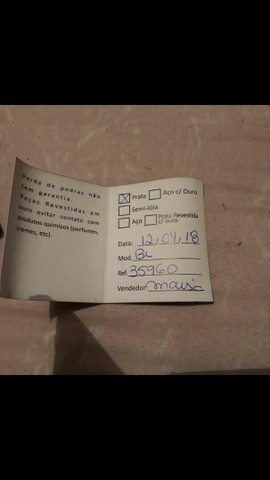 Perda de pedras não
tem garantia.
Peças Revestidas em
ouro evitar contato com
produtos químicos (parfumes,
cremes, etc).
Prata Aço c/ Ouro
Semi-Joia
Aço Prata Revestida
c/ ouro
Data: 12,04,18
Mod. BL
Ref. 35960
Vendedor: